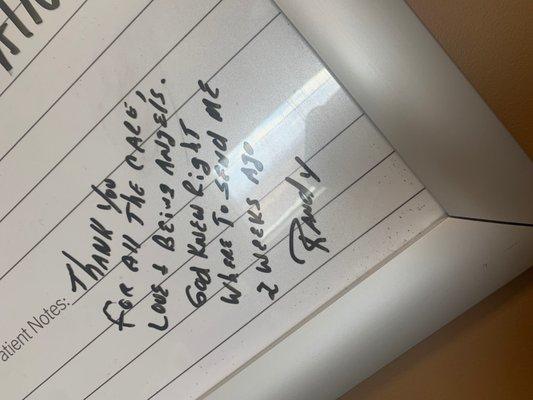 Patient Notes:
THANK YOU
FOR All THE CARE,
LOVE & BEING ANGELS.
God KNEW Right
WHERE TO SEND ME
2 WEEKS AGO
Randy